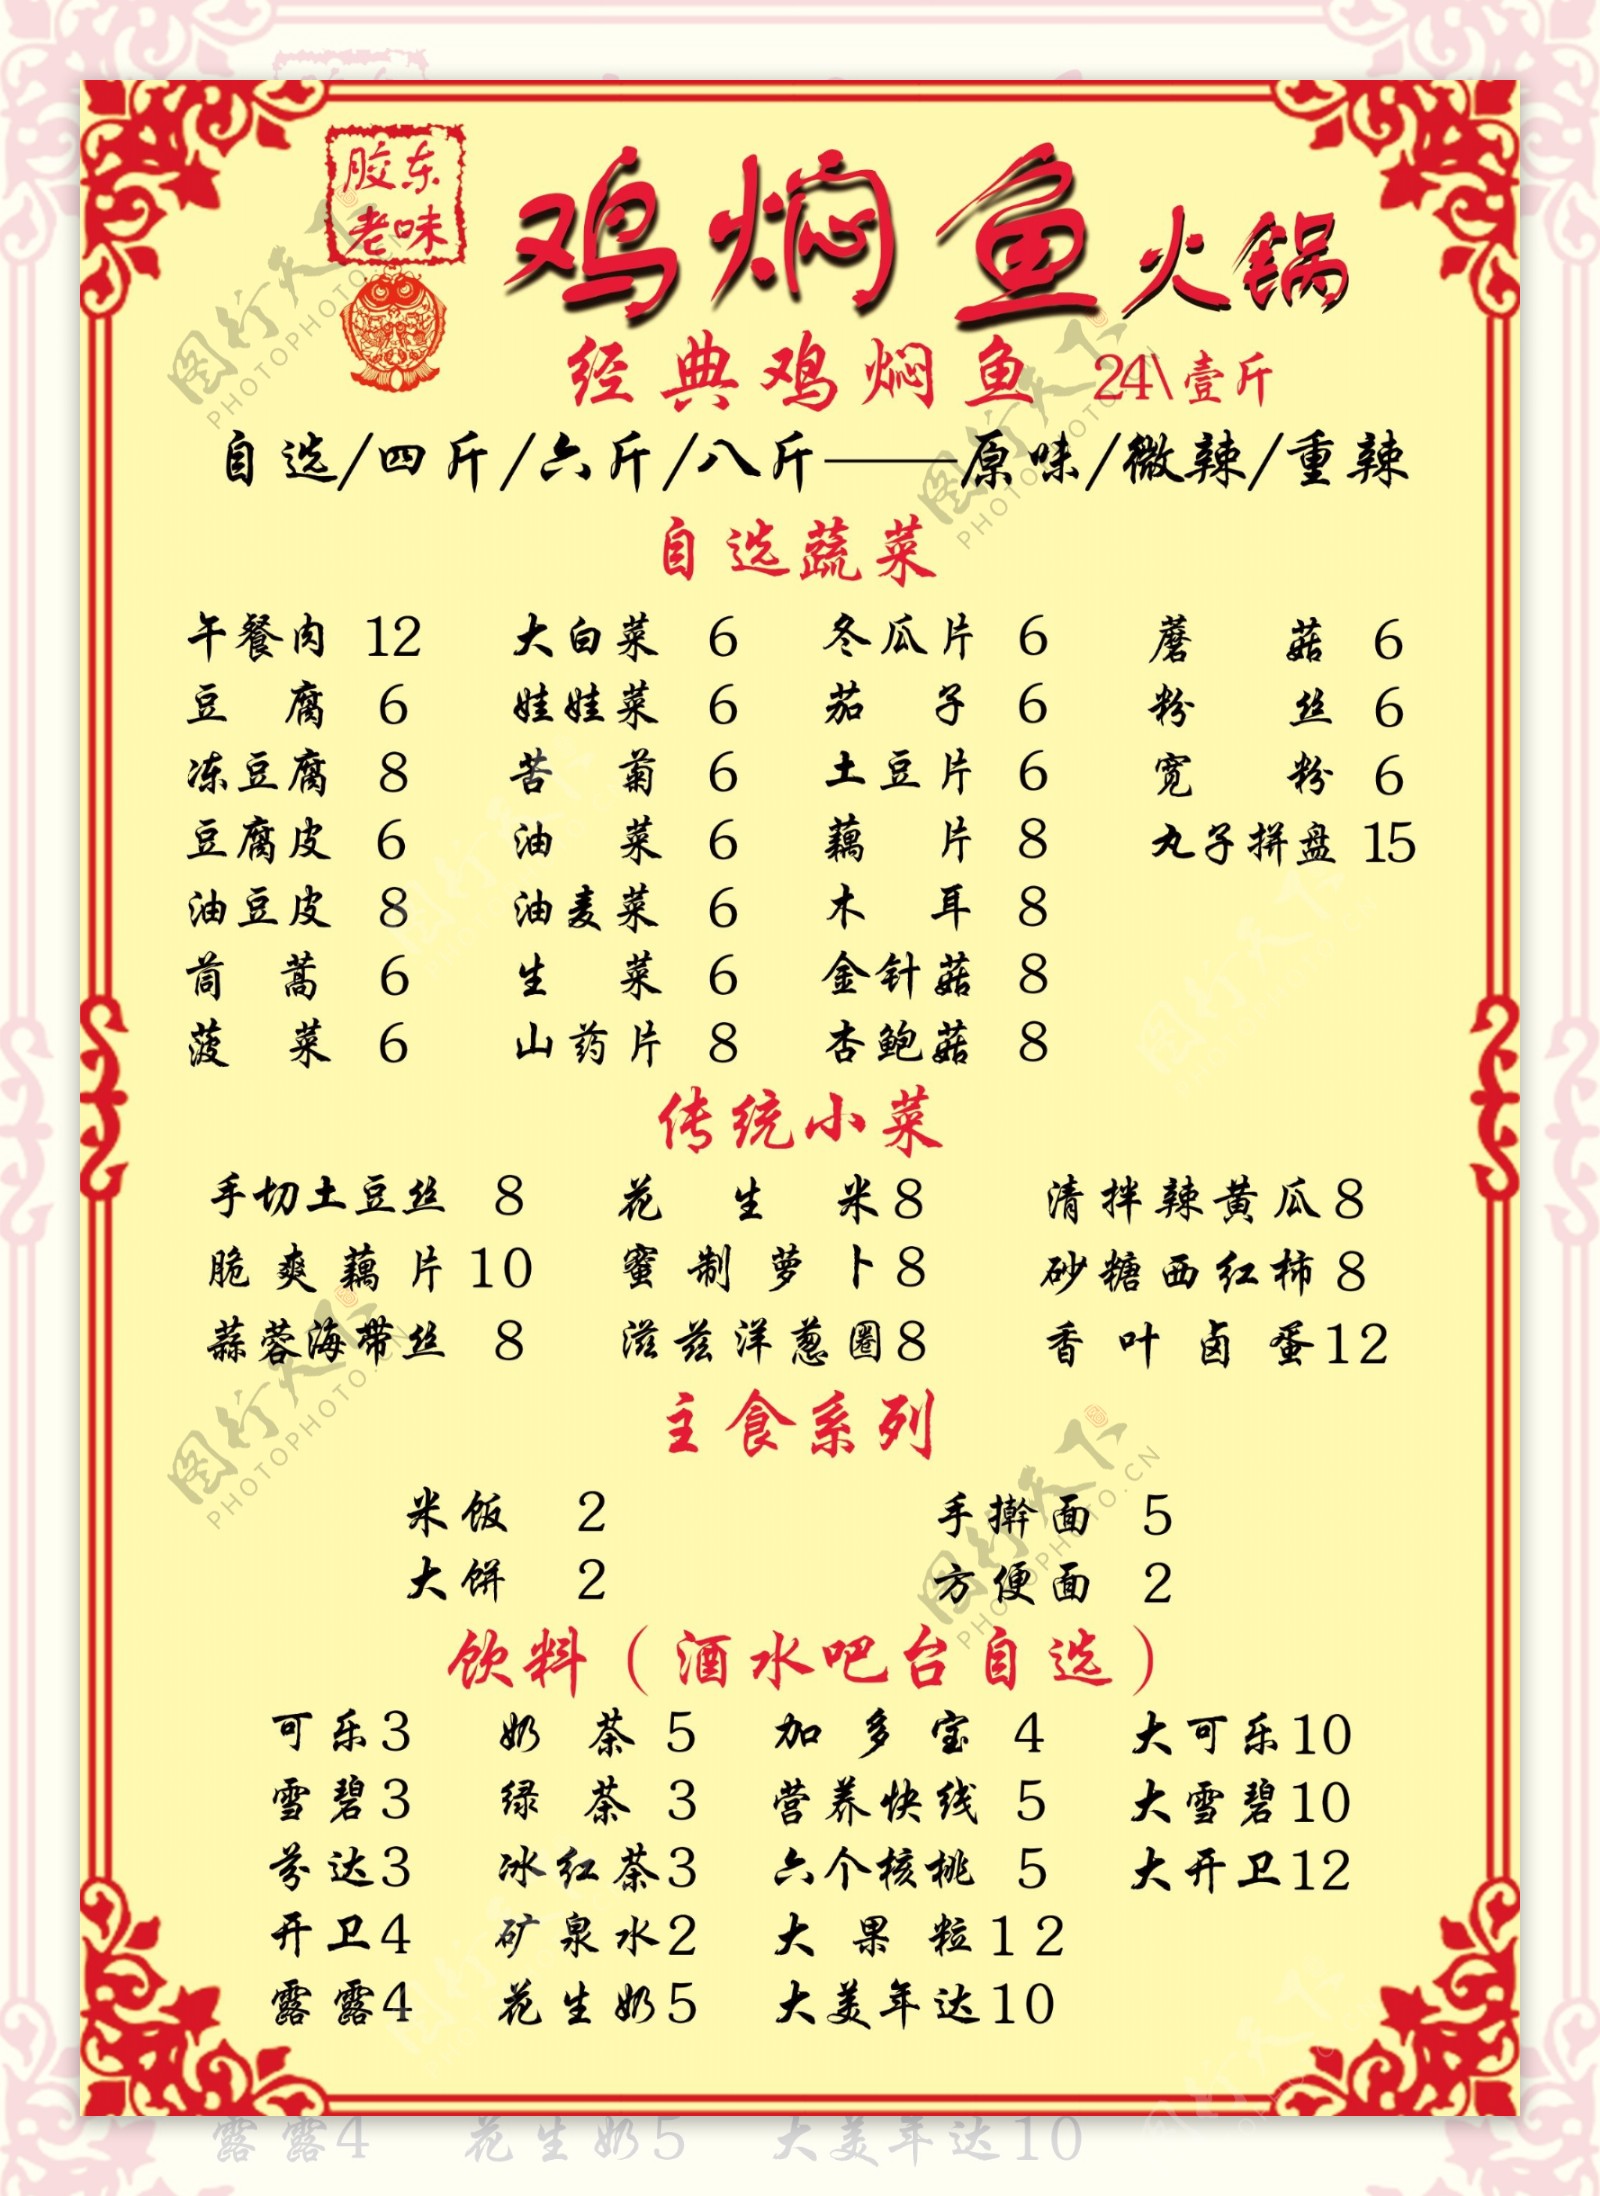 胶东
老味
鸡焖鱼火锅
经典鸡焖鱼 24\壹斤
自选/四斤/六斤/八斤——原味/微辣/重辣
自选蔬菜
午餐肉 12 大白菜 6 冬瓜片 6 蘑菇 6
豆腐 6 娃娃菜 6 茄子 6 粉丝 6
冻豆腐 8 苦菊 6 土豆片 6 宽粉 6
豆腐皮 6 油菜 6 藕片 8 丸子拼盘 15
油豆皮 8 油麦菜 6 木耳 8
茼蒿 6 生菜 6 金针菇 8
菠菜 6 山药片 8 杏鲍菇 8
传统小菜
手切土豆丝 8 花生米8 清拌辣黄瓜8
脆爽藕片 10 蜜制萝卜8 砂糖西红柿8
蒜蓉海带丝 8 滋兹洋葱圈8 香叶卤蛋12
主食系列
米饭 2 手擀面 5
大饼 2 方便面 2
饮料（酒水吧台自选）
可乐3 奶茶 5 加多宝 4 大可乐10
雪碧3 绿茶 3 营养快线 5 大雪碧10
芬达3 冰红茶3 六个核桃 5 大开卫12
开卫4 矿泉水2 大果粒12
露露4 花生奶5 大美年达10
露露4 花生奶5 大美年达10
图行天下
PHOTOPHOTO.CN
图行天下
PHOTOPHOTO.CN
图行天下
PHOTOPHOTO.CN
图行天下
PHOTOPHOTO.CN